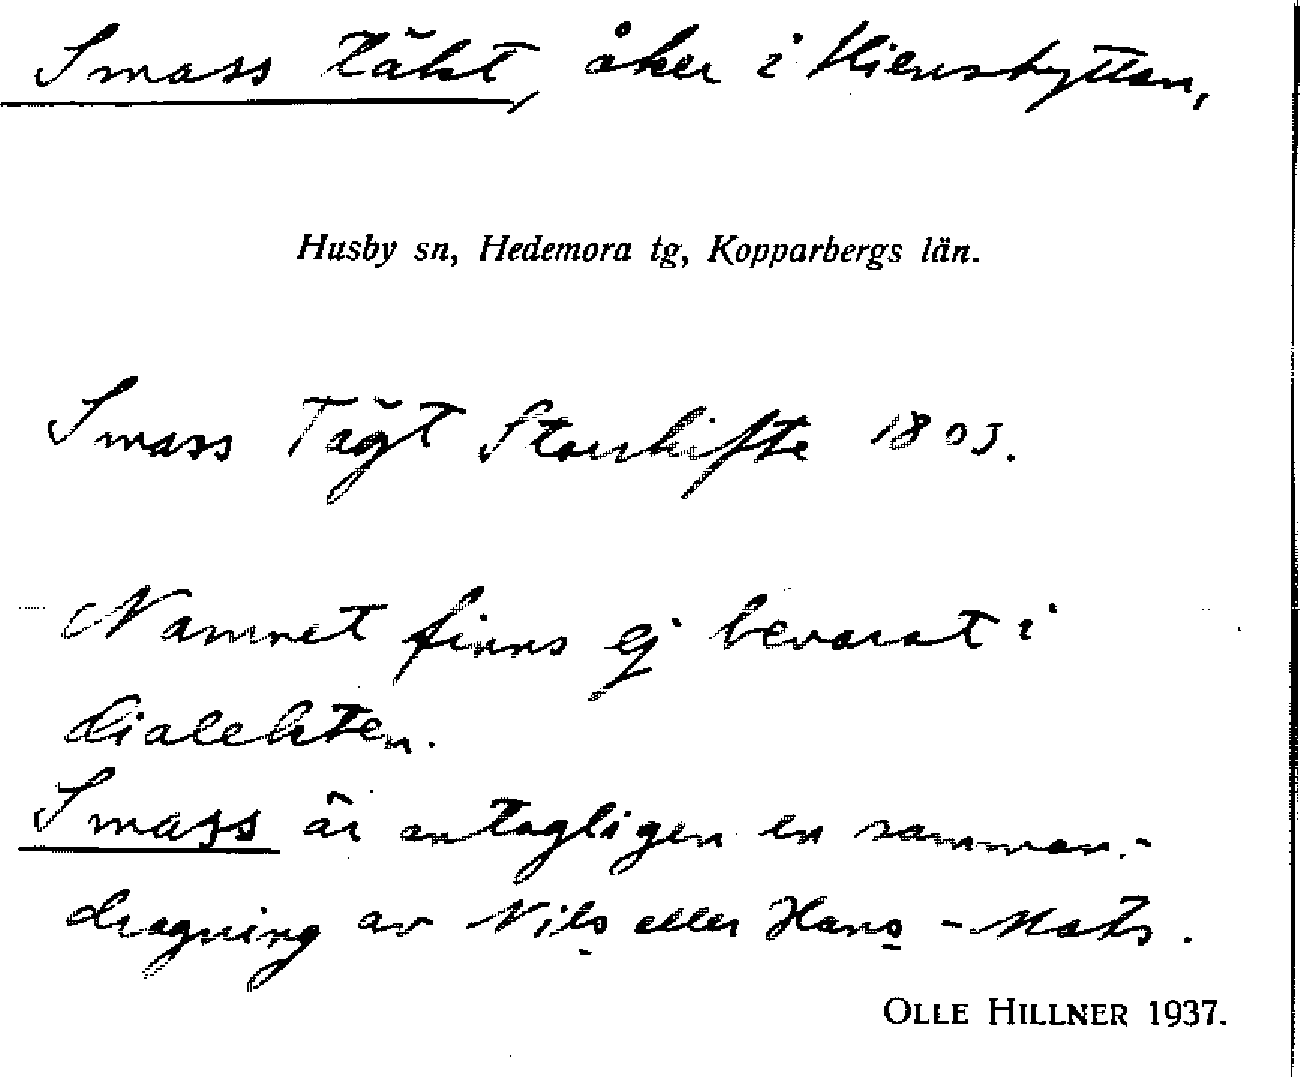 Smass Täkt, åker i Klenshyttan,
Husby sn, Hedemora tg, Kopparbergs län.
Smass Tägt Storskifte 1805.
Namnet finns ej bevarat i
dialekten.
Smass är antagligen en samman-
dragning av Nils eller Hans - Mats.
OLLE HILLNER 1937.